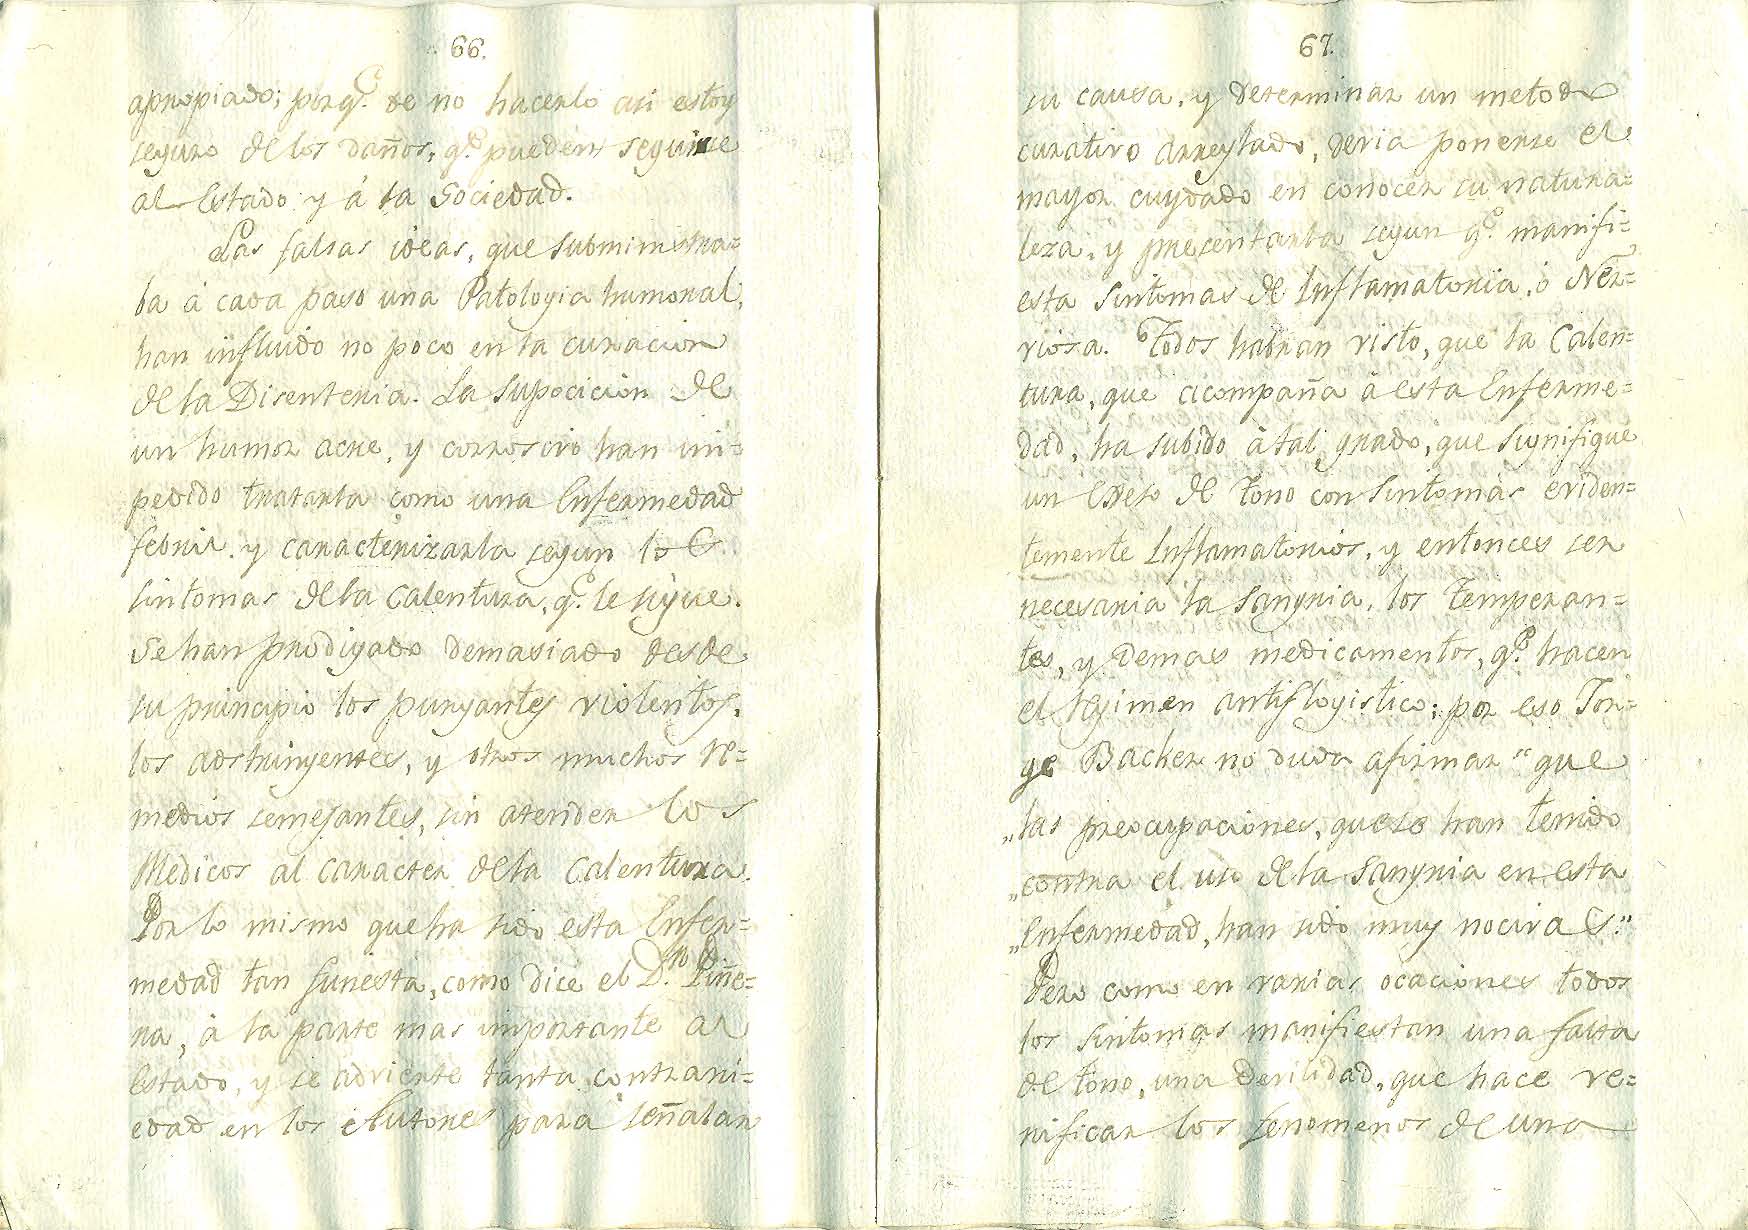 66.
apropiado; porq.e de no hacerlo asi estoy
seguro de los daños, q.e pueden seguirse
al Estado y á la Sociedad.
Las falsas ideas, que subministra=
ba á cada paso una Patologia humoral,
han influido no poco en la curacion
de la Disenteria. La suposicion de
un humor acre, y corrosivo han im=
pedido tratarla como una Enfermedad
febril y caracterizarla segun los
sintomas de la Calentura, q.e le sigue.
Se han prodigado demasiado desde
su principio los purgantes violentos,
los adstringentes, y otros muchos re=
medios semejantes, sin atender los
Medicos al caracter de la Calentura.
Por lo mismo que ha sido esta Enfer=
medad tan funesta, como dice el D.r D. Piñe=
ra, á la parte mas importante al
estado, y se advierte tanta contrari=
edad en los Autores para señalar
67.
su causa, y determinar un metodo
curativo arreglado, deria ponerse el
mayor cuydado en conocer su natura=
leza, y presentarla segun q.e manifi=
esta sintomas de Inflamatoria, ó Ner=
viosa. Todos habran visto, que la Calen=
tura, que acompaña á esta Enferme=
dad, ha subido á tal grado, que signifique
un exceso de tono con sintomas eviden=
temente Inflamatorios, y entonces ser
necesaria la Sangria, los temperan=
tes, y demas medicamentos, q.e hacen
el regimen antiflogistico; por eso Jor=
ge Backer no duda afirmar "que
„las preocupaciones, que se han tenido
„contra el uso de la Sangria en esta
„Enfermedad, han sido muy nocivas."
Pero como en varias ocaciones todos
los sintomas manifiestan una falta
de tono, una devilidad, que hace ve=
rificar los fenomenos de una